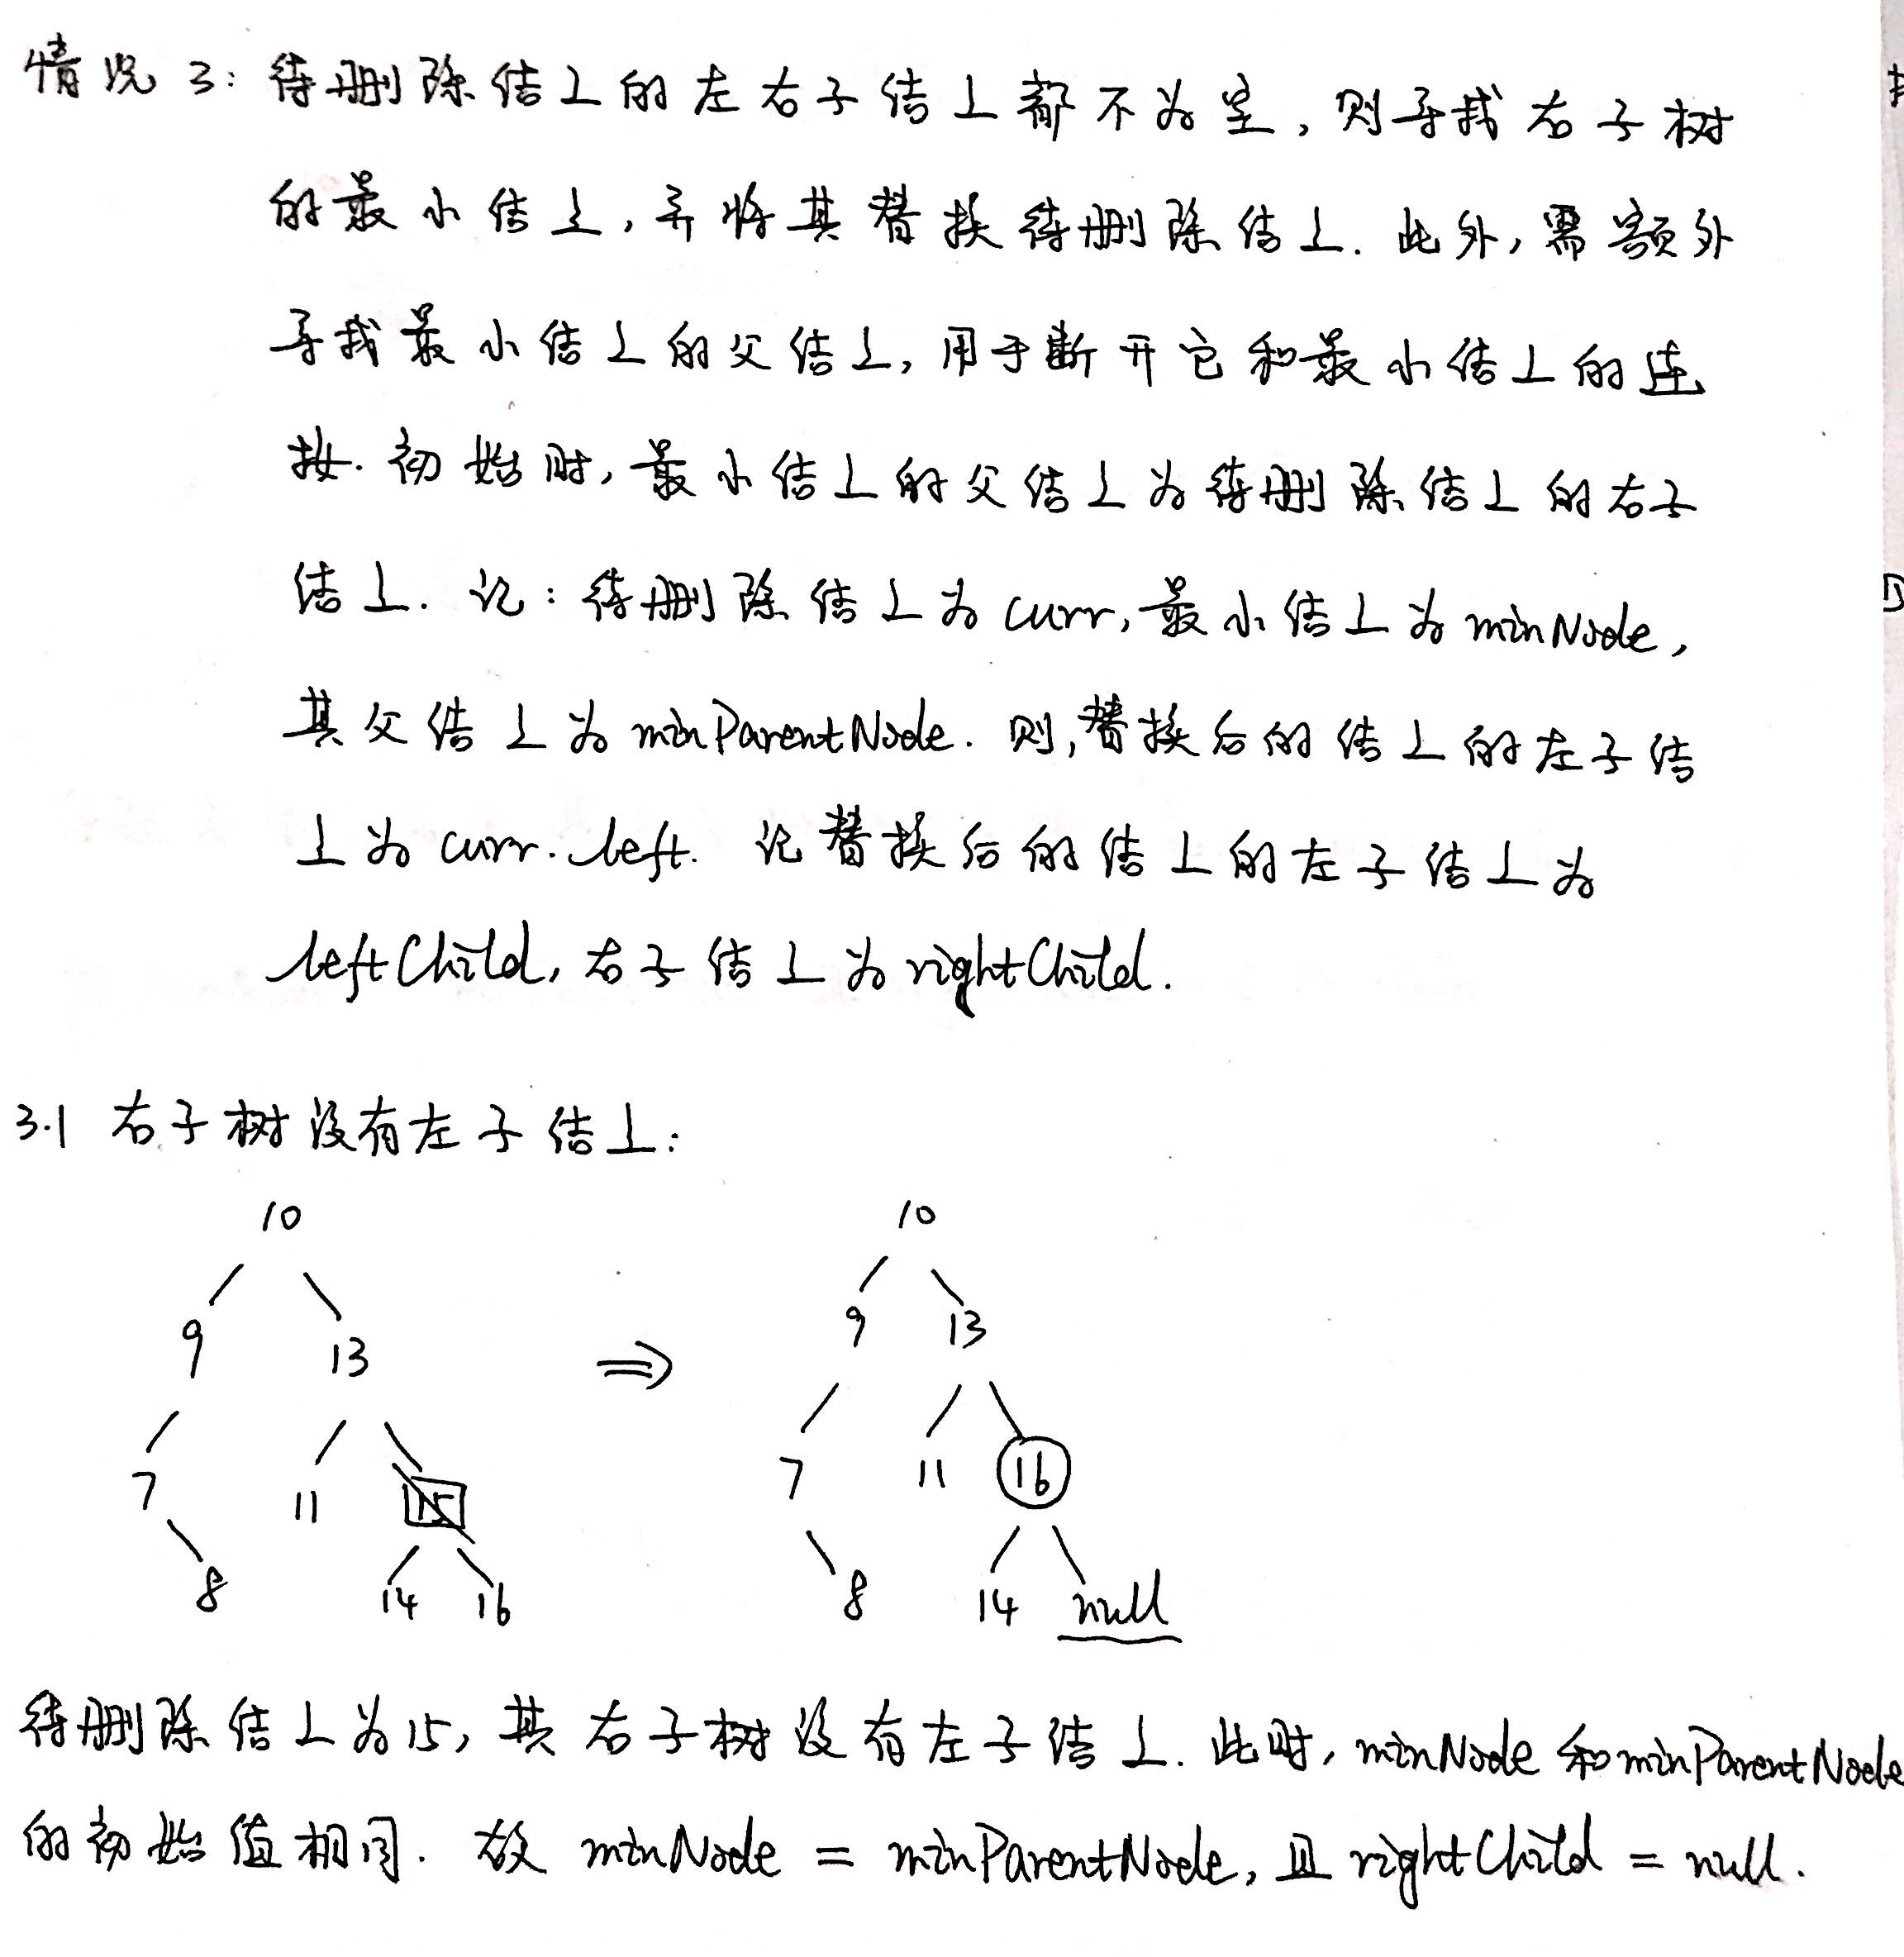 情况 3: 待删除结点的左右子结点都不为空, 则寻找右子树
的最小结点, 并将其替换待删除结点. 此外, 需额外
寻找最小结点的父结点, 用于断开它和最小结点的连
接. 初始时, 最小结点的父结点为待删除结点的右子
结点. 记: 待删除结点为 curr, 最小结点为 minNode,
其父结点为 minParentNode. 则, 替换后的结点的左子结
点为 curr.left. 记替换后的结点的左子结点为
leftChild, 右子结点为 rightChild.
3.1 右子树没有左子结点:
10
9 13
7 11 15
8 14 16
⇒
10
9 13
7 11 16
8 14 null
待删除结点为15, 其右子树没有左子结点. 此时, minNode 和 minParentNode
的初始值相同. 故 minNode = minParentNode, 且 rightChild = null.